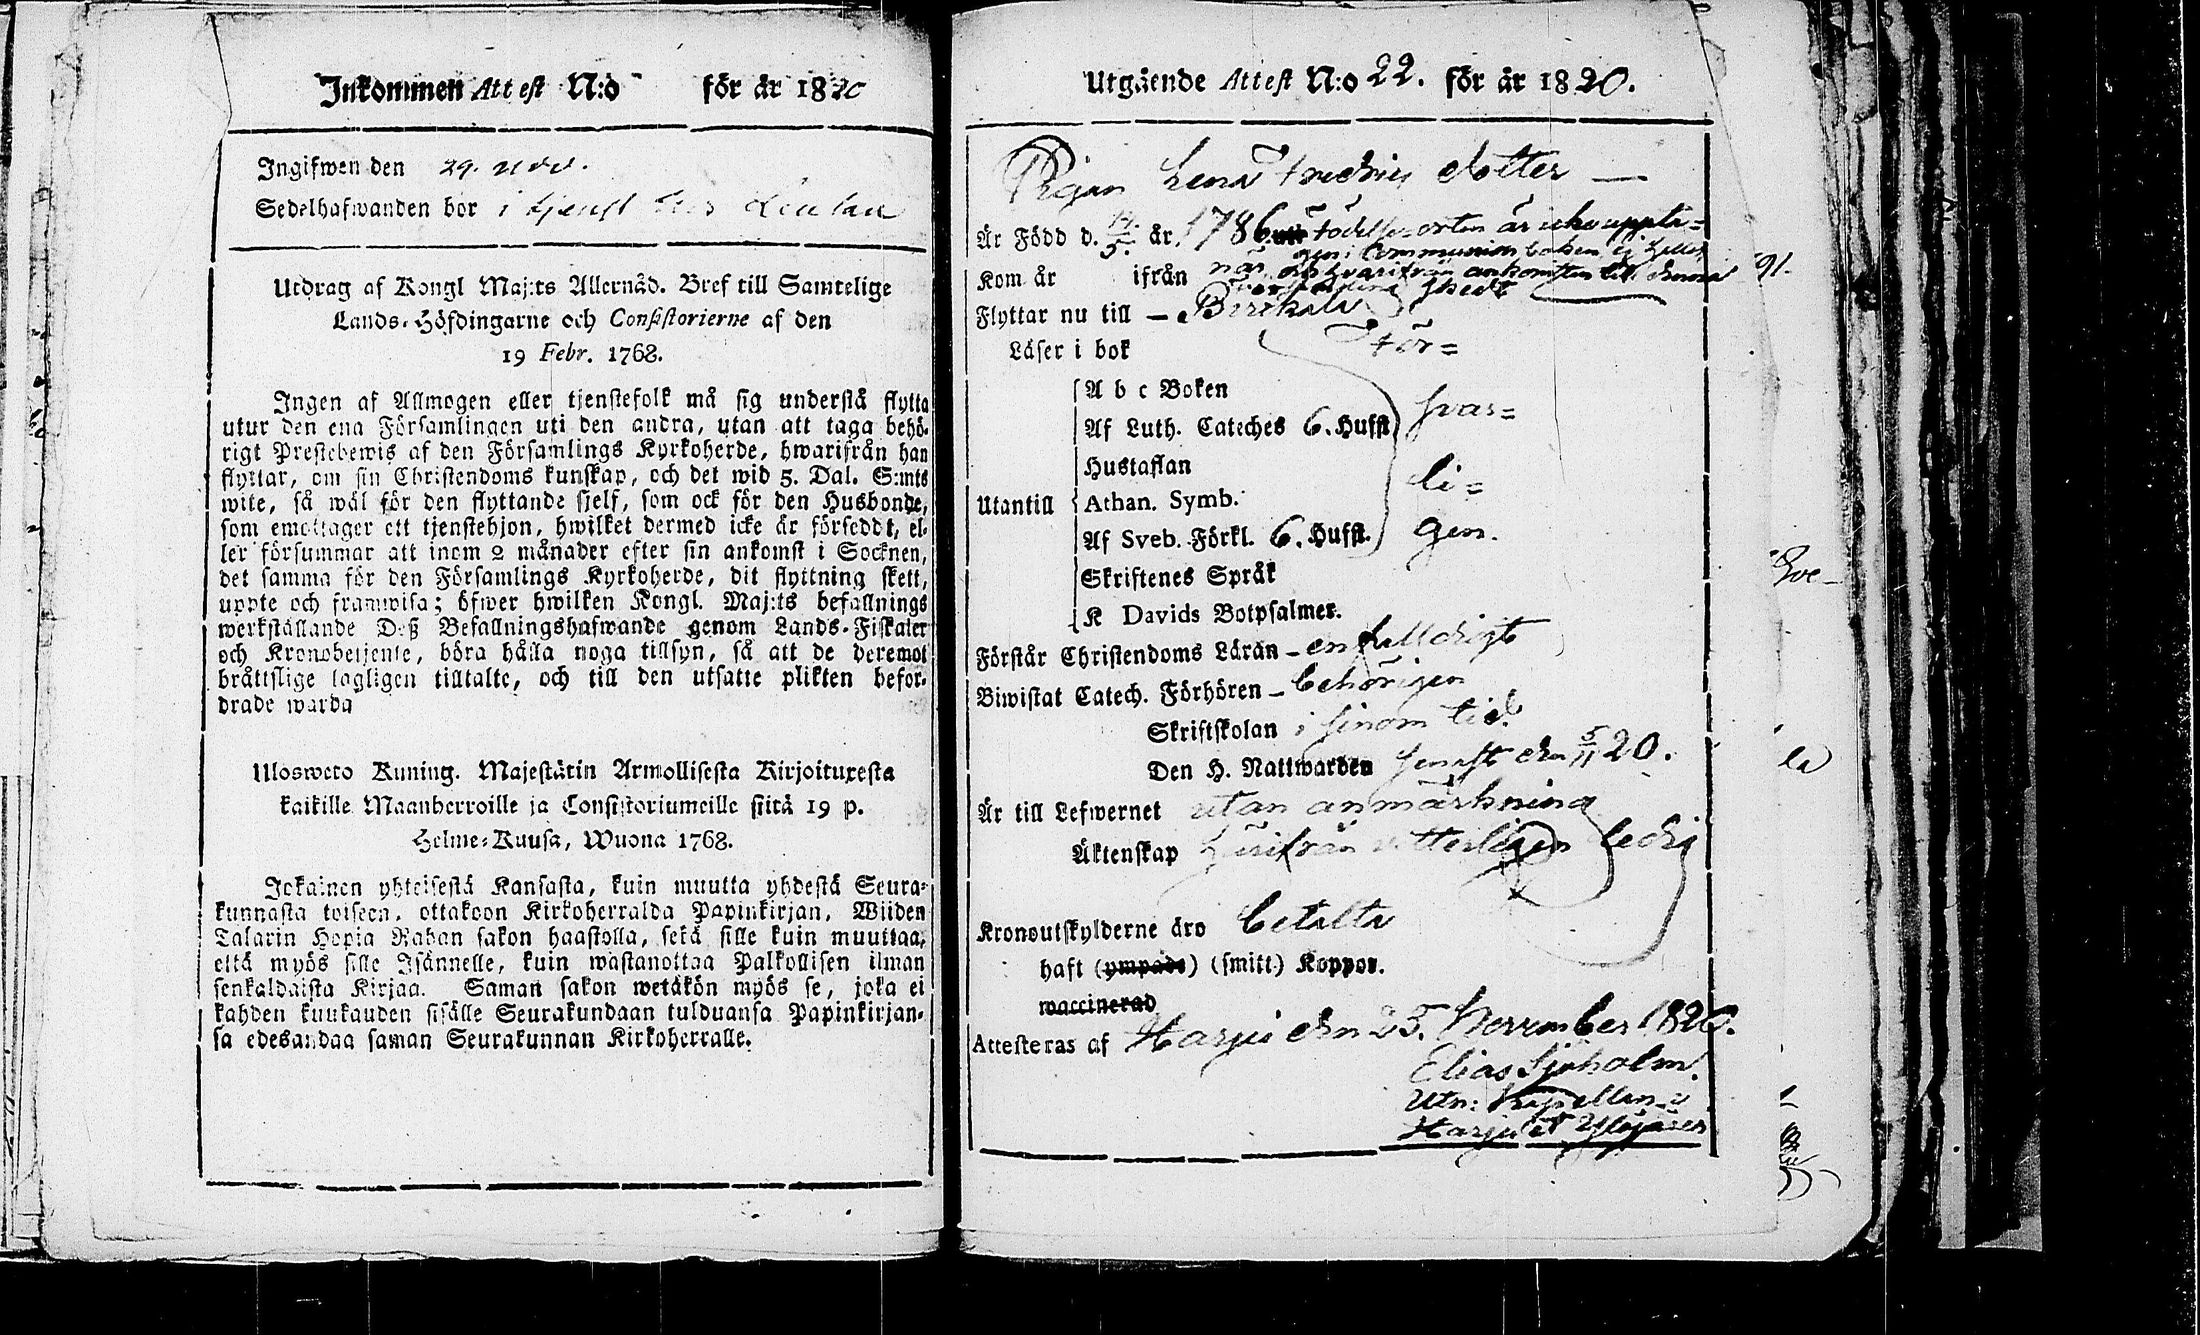 Inkommen Attest N:o för år 1820
Ingifwen den 29. Nov.
Sedelhafwanden bor i tjenst hos
Utdrag af Kongl Maj:ts Allernåd. Bref till Samtelige
Lands-Höfdingarne och Consistorierne af den
19 Febr. 1768.
Ingen af Allmogen eller tjenstefolk må sig understå flytta
utur den ena Församlingen uti den andra, utan att taga behö-
rigt Prestebewis af den Församlings Kyrkoherde, hwarifrån han
flyttar, om sin Christendoms kunskap, och det wid 5. Dal. S:mts
wite, så wäl för den flyttande sjelf, som ock för den Husbonde,
som emottager ett tjenstehjon, hwilket dermed icke är förseddt, el-
ler försummar att inom 2 månader efter sin ankomst i Socknen,
det samma för den Församlings Kyrkoherde, dit flyttning skett,
uppte och framwisa; öfwer hwilken Kongl. Maj:ts befallnings
werkställande Deß Befallningshafwande genom Lands-Fiskaler
och Kronobetjente, böra hålla noga tillsyn, så att de deremot
bråttslige lagligen tilltalte, och till den utsatte plikten befor-
drade warda
Ulosweto Kuning. Majestätin Armollisesta Kirjoituxesta
kaikille Maanherroille ja Consistoriumeille siitä 19 p.
Helme-Kuusa, Wuona 1768.
Jokainen yhteisestä Kansasta, kuin muutta yhdestä Seura-
kunnasta toiseen, ottakoon Kirkoherralda Papinkirjan, Wiiden
Talarin Hopia Rahan sakon haastolla, sekä sille kuin muuttaa,
että myös sille Isännelle, kuin wastanottaa Palkollisen ilman
senkaldaista Kirjaa. Saman sakon wetäkön myös se, joka ei
kahden kuukauden sisälle Seurakundaan tulduansa Papinkirjan-
sa edesandaa saman Seurakunnan Kirkoherralle.
Utgående Attest N:o 22. för år 1820.
Pigan Lena Fredrics dotter —
Är Född d. 14/5. år 1786. födelse-orten är icke uppta-
gen i Communion boken ej heller
Kom år ifrån när och hvarifrån ankomsten till denna
församling skedt
Flyttar nu till — Birkala
Läser i bok För-
A b c Boken
Af Luth. Cateches 6. Hufst. svar-
Hustaflan
li-
Utantill Athan. Symb.
Af Sveb. Förkl. 6. Hufst. gen.
Skriftenes Språk
K Davids Botpsalmer.
Förstår Christendoms Läran — enfalldigt
Biwistat Catech. Förhören — behörigen
Skriftskolan i sinom tid
Den H. Nattwarden senast den 5/11 20.
Är till Lefwernet utan anmärkning
Äktenskap härifrån vetterligen ledig
Kronoutskylderne äro betalta
haft (ympade) (smitt) Koppor.
waccinerad
Attesteras af Harju den 25. November 1820.
Elias Sjöholm.
Utn: Kapellan i
Harju et Ylöjärvi